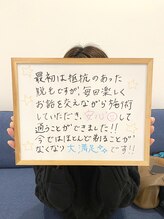 最初は抵抗のあった
脱毛ですが、毎回楽しく
お話を交えながら施術
していただき、安心して
通うことができました!!
今ではほとんど剃ることが
なくなり大満足です!!